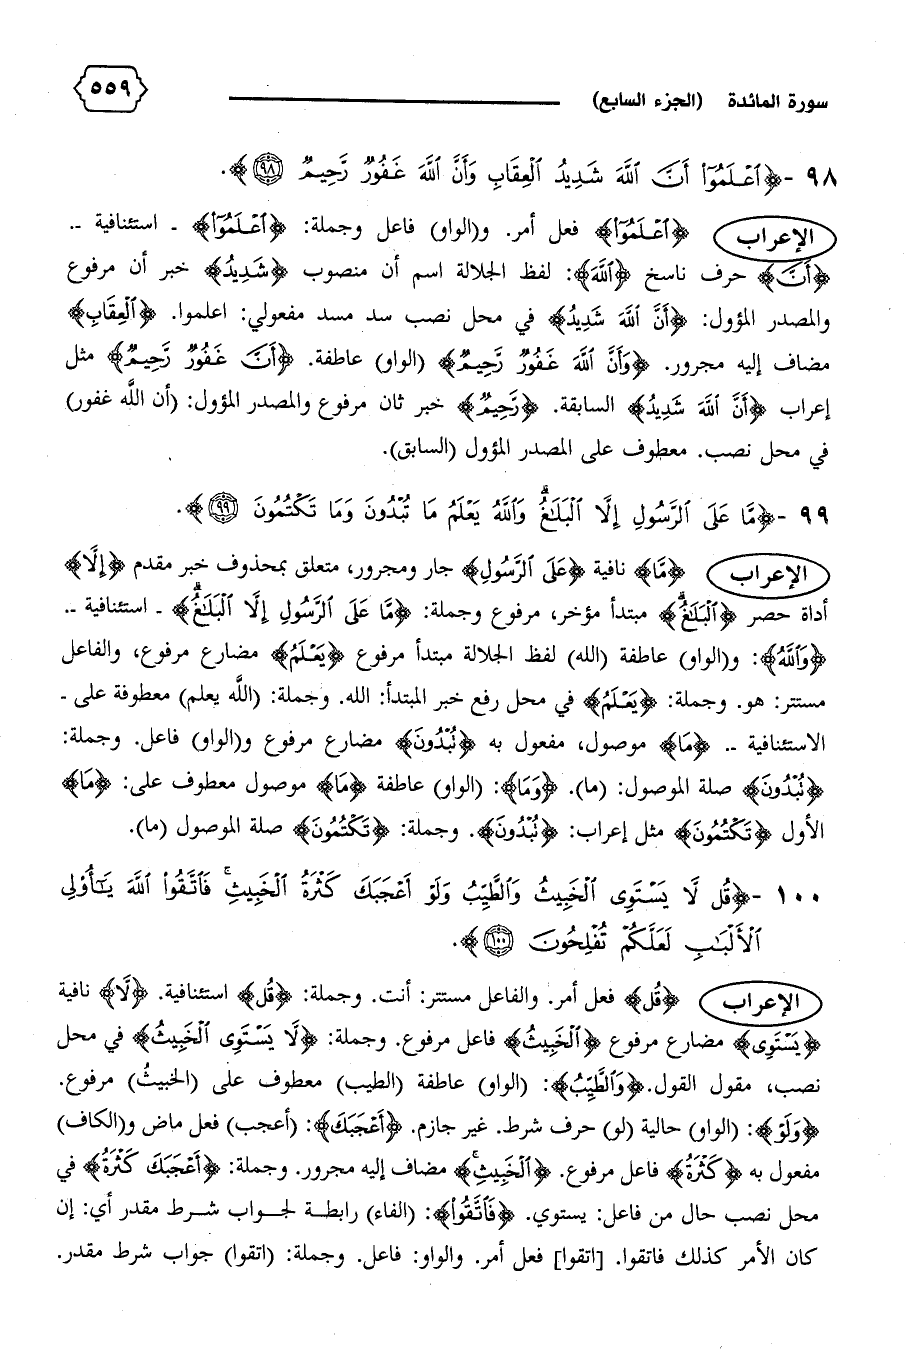 سورة المائدة (الجزء السابع) ٥٥٩
٩٨ -﴿ٱعۡلَمُوٓاْ أَنَّ ٱللَّهَ شَدِيدُ ٱلۡعِقَابِ وَأَنَّ ٱللَّهَ غَفُورٞ رَّحِيمٞ ٩٨﴾.
الإعراب ﴿ٱعۡلَمُوٓاْ﴾ فعل أمر. و(الواو) فاعل وجملة: ﴿ٱعۡلَمُوٓاْ﴾ ـ استئنافية ـ.
﴿أَنَّ﴾ حرف ناسخ ﴿ٱللَّهَ﴾: لفظ الجلالة اسم أن منصوب ﴿شَدِيدُ﴾ خبر أن مرفوع
والمصدر المؤول: ﴿أَنَّ ٱللَّهَ شَدِيدُ﴾ في محل نصب سد مسد مفعولي: اعلموا. ﴿ٱلۡعِقَابِ﴾
مضاف إليه مجرور. ﴿وَأَنَّ ٱللَّهَ غَفُورٞ رَّحِيمٞ﴾ (الواو) عاطفة. ﴿أَنَّ غَفُورٞ رَّحِيمٞ﴾ مثل
إعراب ﴿أَنَّ ٱللَّهَ شَدِيدُ﴾ السابقة. ﴿رَّحِيمٞ﴾ خبر ثان مرفوع والمصدر المؤول: (أن اللَّه غفور)
في محل نصب. معطوف على المصدر المؤول (السابق).
٩٩ -﴿مَّا عَلَى ٱلرَّسُولِ إِلَّا ٱلۡبَلَٰغُۗ وَٱللَّهُ يَعۡلَمُ مَا تُبۡدُونَ وَمَا تَكۡتُمُونَ ٩٩﴾.
الإعراب ﴿مَّا﴾ نافية ﴿عَلَى ٱلرَّسُولِ﴾ جار ومجرور، متعلق بمحذوف خبر مقدم ﴿إِلَّا﴾
أداة حصر ﴿ٱلۡبَلَٰغُۗ﴾ مبتدأ مؤخر، مرفوع وجملة: ﴿مَّا عَلَى ٱلرَّسُولِ إِلَّا ٱلۡبَلَٰغُۗ﴾ ـ استئنافية ـ.
﴿وَٱللَّهُ﴾: و(الواو) عاطفة (الله) لفظ الجلالة مبتدأ مرفوع ﴿يَعۡلَمُ﴾ مضارع مرفوع، والفاعل
مستتر: هو. وجملة: ﴿يَعۡلَمُ﴾ في محل رفع خبر المبتدأ: الله. وجملة: (اللَّه يعلم) معطوفة على ـ
الاستئنافية ـ. ﴿مَا﴾ موصول، مفعول به ﴿تُبۡدُونَ﴾ مضارع مرفوع و(الواو) فاعل. وجملة:
﴿تُبۡدُونَ﴾ صلة الموصول: (ما). ﴿وَمَا﴾: (الواو) عاطفة ﴿مَا﴾ موصول معطوف على: ﴿مَا﴾
الأول ﴿تَكۡتُمُونَ﴾ مثل إعراب: ﴿تُبۡدُونَ﴾. وجملة: ﴿تَكۡتُمُونَ﴾ صلة الموصول (ما).
١٠٠ -﴿قُل لَّا يَسۡتَوِي ٱلۡخَبِيثُ وَٱلطَّيِّبُ وَلَوۡ أَعۡجَبَكَ كَثۡرَةُ ٱلۡخَبِيثِۚ فَٱتَّقُواْ ٱللَّهَ يَٰٓأُوْلِي
ٱلۡأَلۡبَٰبِ لَعَلَّكُمۡ تُفۡلِحُونَ ١٠٠﴾.
الإعراب ﴿قُل﴾ فعل أمر. والفاعل مستتر: أنت. وجملة: ﴿قُل﴾ استئنافية. ﴿لَّا﴾ نافية
﴿يَسۡتَوِي﴾ مضارع مرفوع ﴿ٱلۡخَبِيثُ﴾ فاعل مرفوع. وجملة: ﴿لَا يَسۡتَوِي ٱلۡخَبِيثُ﴾ في محل
نصب، مقول القول. ﴿وَٱلطَّيِّبُ﴾: (الواو) عاطفة (الطيب) معطوف على (الخبيثُ) مرفوع.
﴿وَلَوۡ﴾: (الواو) حالية (لو) حرف شرط. غير جازم. ﴿أَعۡجَبَكَ﴾: (أعجب) فعل ماض و(الكاف)
مفعول به ﴿كَثۡرَةُ﴾ فاعل مرفوع. ﴿ٱلۡخَبِيثِۚ﴾ مضاف إليه مجرور. وجملة: ﴿أَعۡجَبَكَ كَثۡرَةُ﴾ في
محل نصب حال من فاعل: يستوي. ﴿فَٱتَّقُواْ﴾: (الفاء) رابطة لجواب شرط مقدر أي: إن
كان الأمر كذلك فاتقوا. [اتقوا] فعل أمر. والواو: فاعل. وجملة: (اتقوا) جواب شرط مقدر.